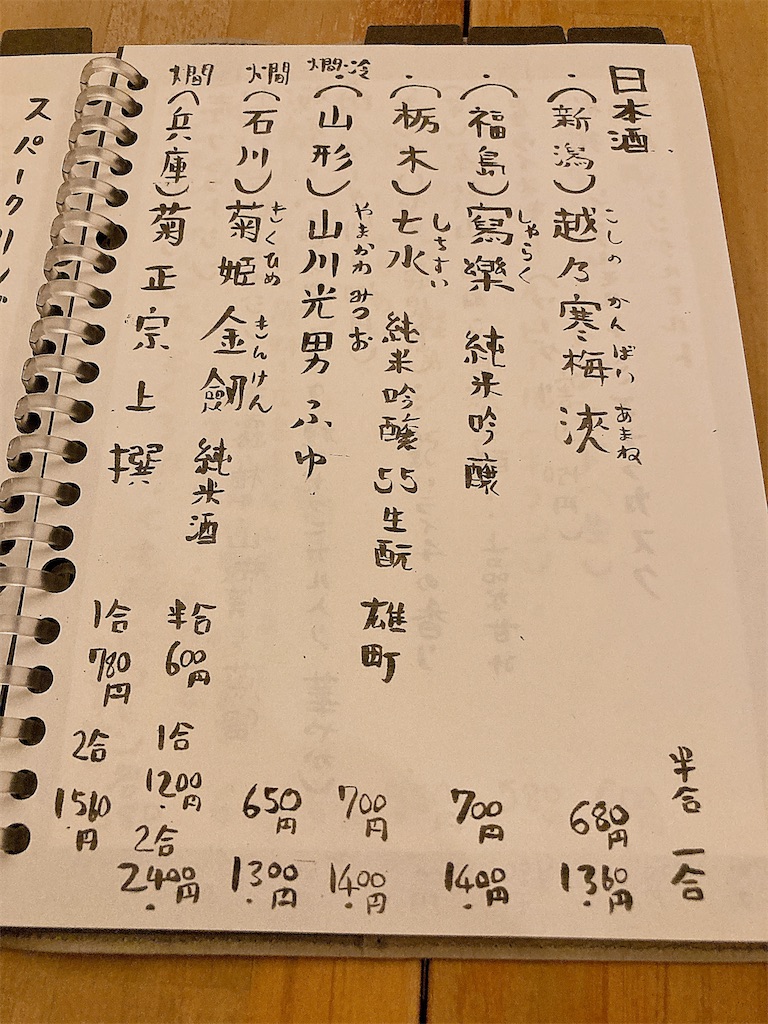 日本酒
半合 一合
・(新潟)越乃寒梅 浹
こしの かんばい あまね
680円 1360円
・(福島)寫樂 純米吟醸
しゃらく
700円 1400円
・(栃木)七水 純米吟醸 55 生酛 雄町
しちすい
700円 1400円
・(山形)山川光男 ふゆ
燗・冷
やまかわ みつお
650円 1300円
燗(石川)菊姫 金劔 純米酒
きくひめ きんけん
半合 600円
1合 1200円
2合 2400円
燗(兵庫)菊正宗 上撰
1合 780円
2合 1560円
スパークリング